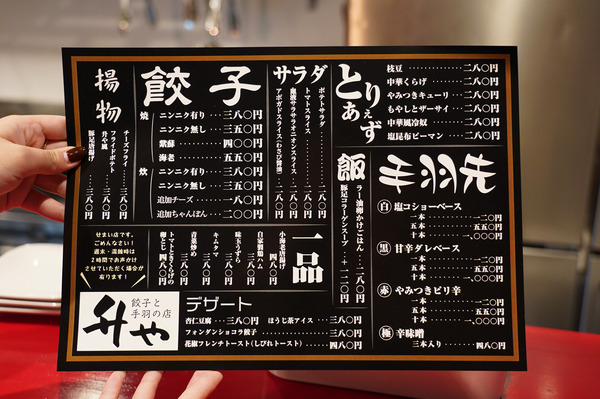 とりあえず
枝豆 二八〇円
中華くらげ 二八〇円
やみつきキューリ 二八〇円
もやしとザーサイ 二八〇円
中華風冷奴 二八〇円
塩昆布ピーマン 二八〇円
サラダ
ポテトサラダ 二八〇円
トマトスライス 二八〇円
血液サラサラオニオンスライス 二八〇円
アボガドスライス(わさび醤油) 二八〇円
餃子
焼
ニンニク有り 三八〇円
ニンニク無し 三五〇円
紫蘇 四八〇円
海老 五八〇円
炊
ニンニク有り 三八〇円
ニンニク無し 三五〇円
追加チーズ 一八〇円
追加ちゃんぽん 二〇〇円
揚物
チーズフライ 三八〇円
フライドポテト
升や風
豚足唐揚げ 三八〇円
手羽先
白 塩コショーベース
一本 一二〇円
五本 五五〇円
十本 一、〇〇〇円
黒 甘辛ダレベース
一本 一二〇円
五本 五五〇円
十本 一、〇〇〇円
赤 やみつきピリ辛
一本 一二〇円
五本 五五〇円
十本 一、〇〇〇円
極 辛味噌
三本入り 四八〇円
飯
ラー油卵かけごはん 二八〇円
豚足コラーゲンスープ 二二〇円
一品
小海老唐揚げ
自家製鶏ハム
味玉うずら
キムタマ
青菜炒め
トマトときくらげの
卵とじ 四八〇円
せまい店です。
ごめんなさい!
週末・混雑時は
2時間でお声がけ
させていただく場合が
有ります!
餃子と
手羽の店
升や
デザート
杏仁豆腐 三八〇円
ほうじ茶アイス 三八〇円
フォンダンショコラ餃子 三八〇円
花椒フレンチトースト(しびれトースト) 四八〇円